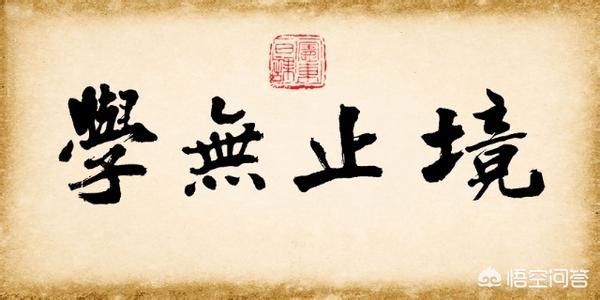 學無止境
悟空问答